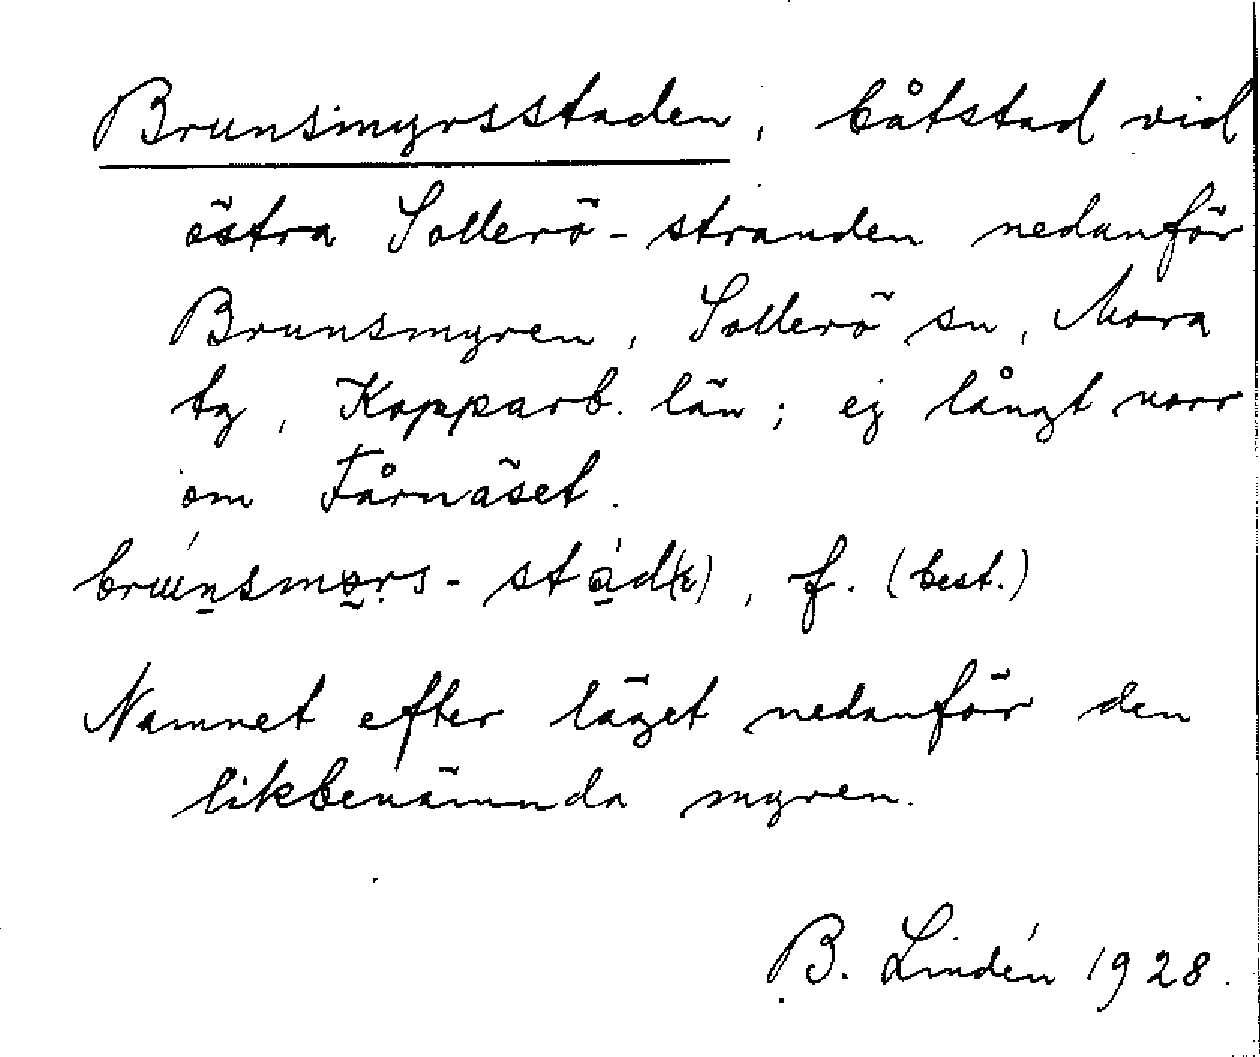 Brunsmyrsstaden, båtstad vid
östra Sollerö-stranden nedanför
Brunsmyren, Sollerö sn, Mora
tg, Kopparb. län; ej långt norr
om Fårnäset.
f. (best.)
Namnet efter läget nedanför den
likbenämnda myren.
B. Lindén 1928.